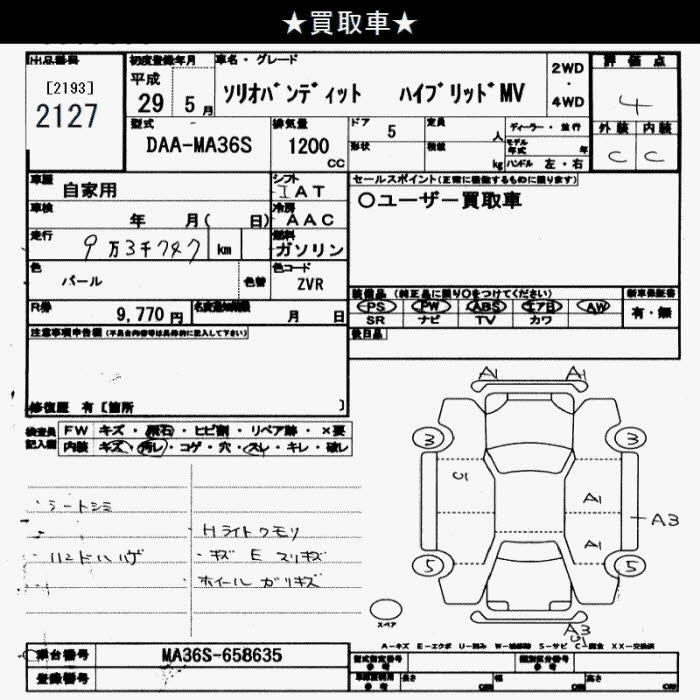 ★買取車★
出品番号
[2193]
2127
初度登録年月
平成
29 5 月
車名・グレード
ソリオバンディット ハイブリッドMV
2WD
・
4WD
評価点
4
外装 内装
C C
型式
DAA-MA36S
排気量
1200
CC
ドア 5
形状
定員
人
積載
kg
ディーラー・並行
モデル年式 年
ハンドル 左・右
車歴 自家用
シフト
IAT
車検 年 月( 日)
冷房
AAC
走行 9万3千747 km
燃料
ガソリン
色 パール
色替
色コード
ZVR
R券 9,770 円
名変期限 月 日
セールスポイント(正常に機能するものに限ります)
○ユーザー買取車
装備品 (純正品に限り○をつけてください)
PS PW ABS エアB AW
SR ナビ TV カワ
新車保証書
有・無
後日品
注意事項申告欄
修復歴 有 [箇所 ]
検査員記入欄
FW キズ・飛石・ヒビ割・リペア跡・×要
内装 キズ・汚レ・コゲ・穴・スレ・キレ・破レ
・シートシミ
Hライトクモリ
・ハンドルハゲ
・キズ E スリキズ
ホイールガリキズ
A1 A1
3 3
C1
A1
A3
A1
5 5
スペア
A3
C1
A-キズ E-エクボ U-凹み W-補修跡 S-サビ C-腐食 XX-交換済
車台番号 MA36S-658635
登録番号
型式指定番号 参考
類別区分番号 参考
長さ cm
幅 cm
高さ cm